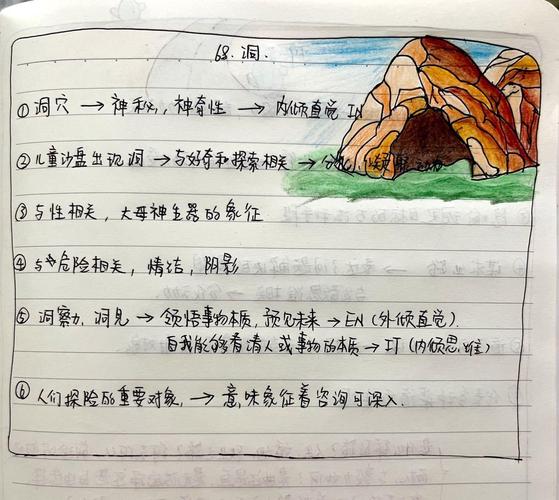 68. 洞.
①洞穴 → 神秘, 神奇性 → 内倾直觉 IN
②儿童沙盘出现洞 → 与好奇和探索相关 →
③与性相关, 大母神生殖器的象征
④与危险相关, 情结, 阴影
⑤洞察力, 洞见 → 领悟事物本质, 预见未来 → EN (外倾直觉).
自我能够看清人或事物的本质 → IT (内倾思维)
⑥人们探险的重要对象, → 意味象征着咨询可深入.